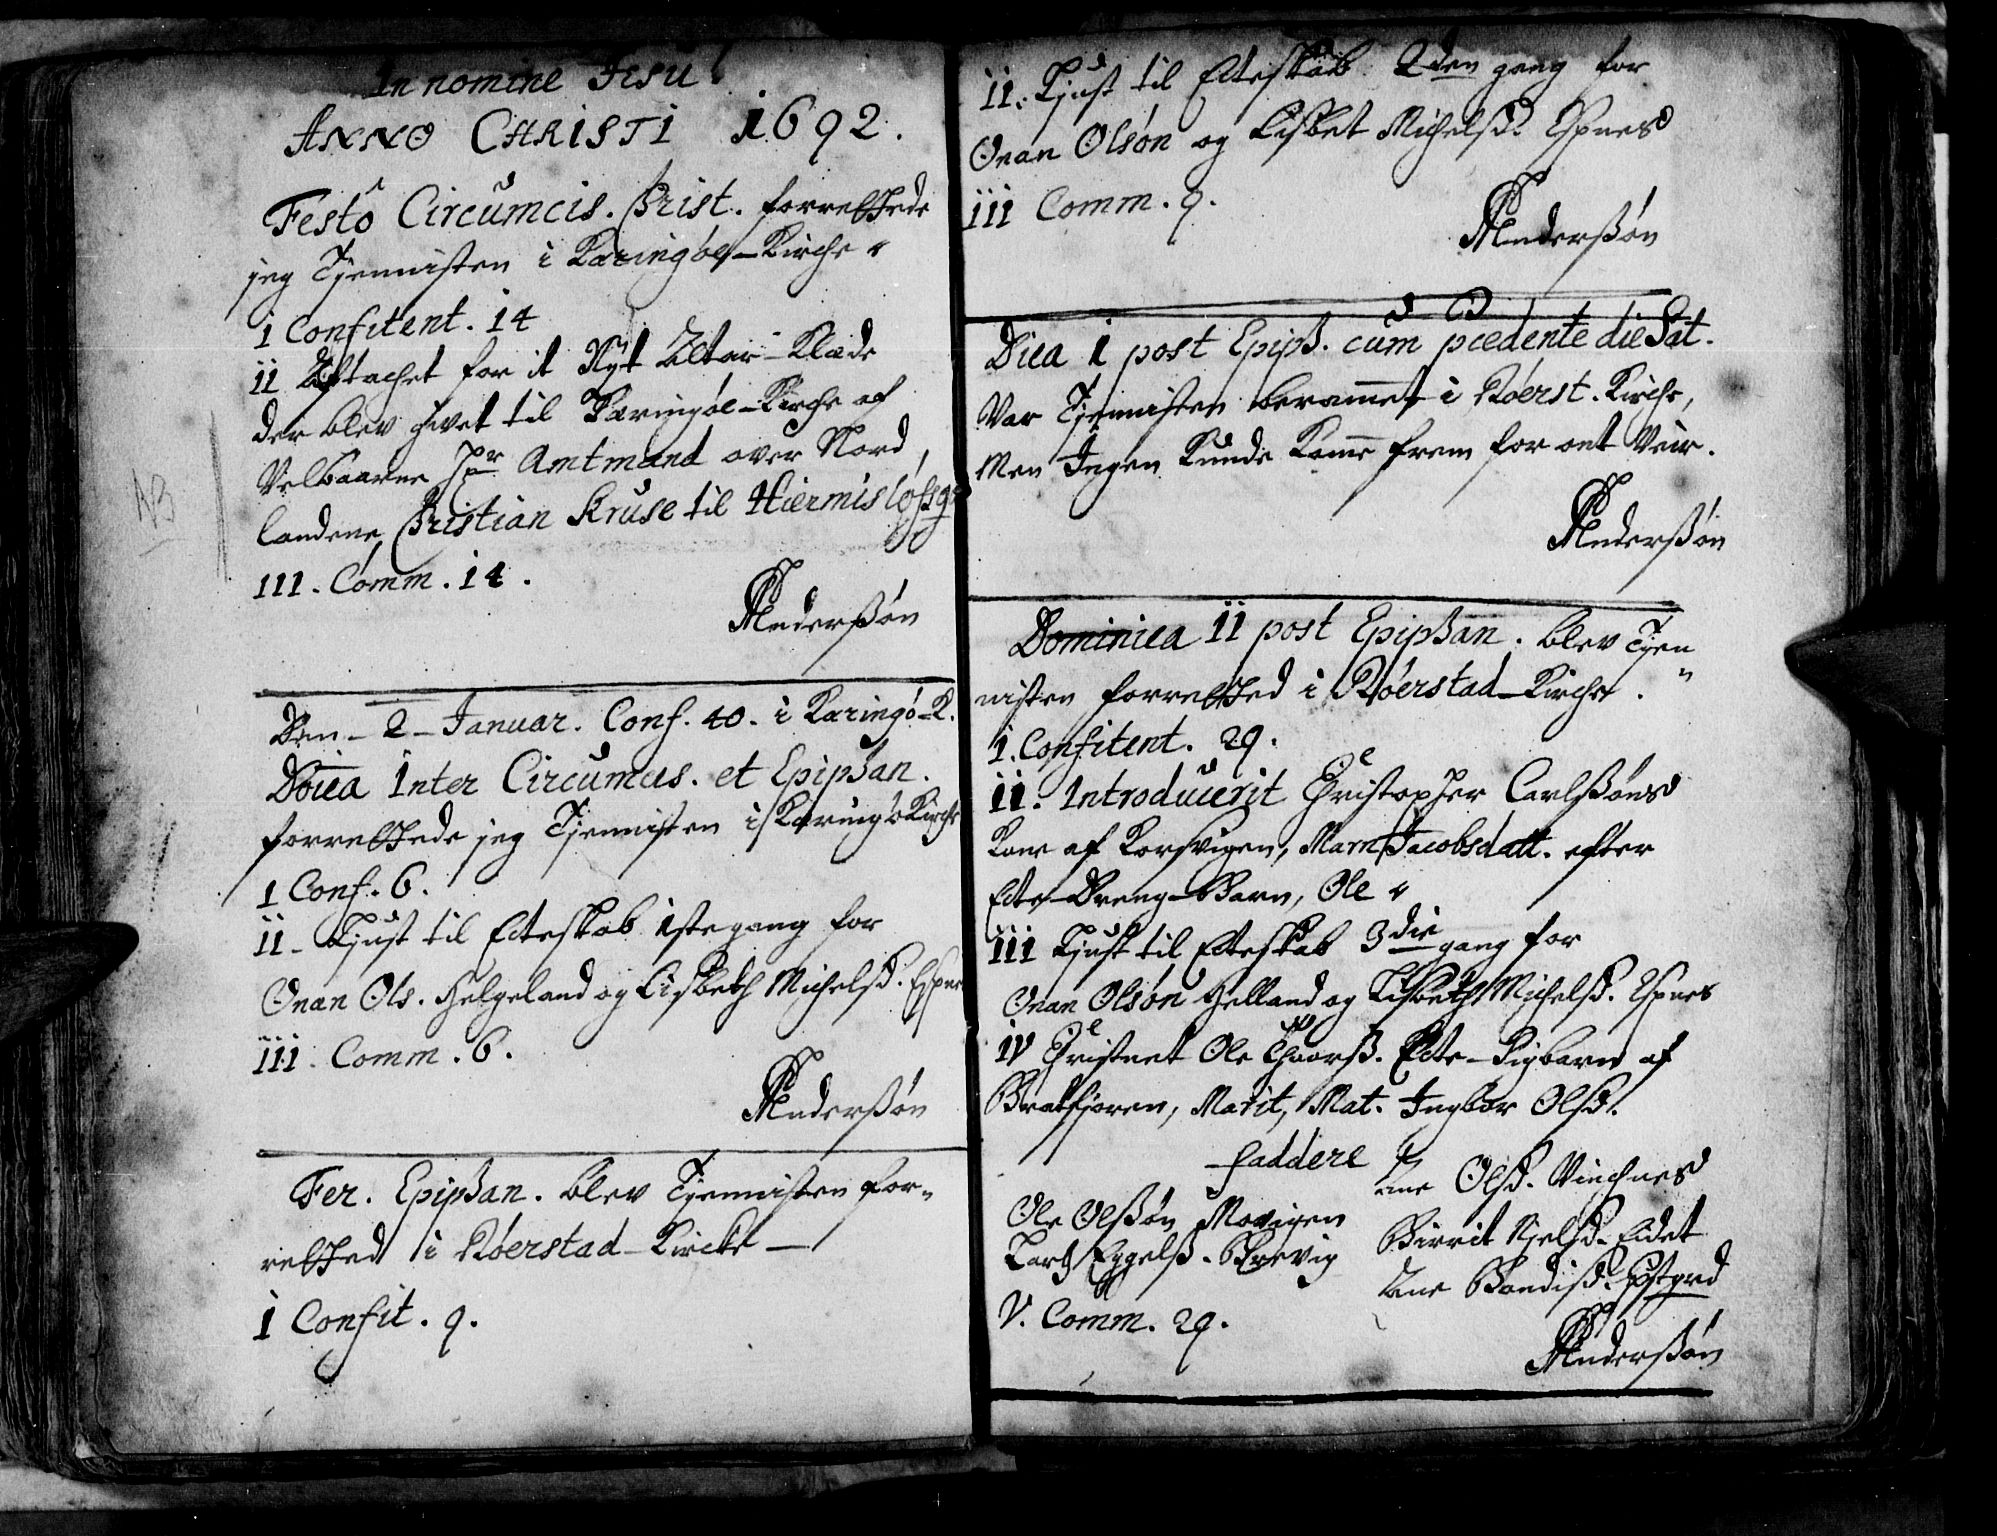 In nomine Jesu!
ANNO CHRISTI 1692.
Festô Circumcis. Christ. forrettede
jeg Tjennisten i Kæringøe-Kirche
i Confitent. 14
ii Aftachet for it Nyt Altar-Klæde
der blev givet til Kæringøe-Kirche af
Velbaarne Hr Amtmand over Nord,
landene, Christian Kruse til Hiermisløfsg:
III. Comm. 14.
Anderßøn
Den-2-Januar. Conf. 40. i Kæringø-K.
Dōica Inter Circumcis. et Epiphan.
forrettede jeg Tjennisten i Kæringø Kirche
1 Conf. 6.
II- Liust til Ecteskab istegang for
Onan Ols. Helgeland og Lisbeth Michelsd. Espnes
iii. Comm. 6.
Anderßøn
Fer. Epiphan. blev Tjennisten for-
rettted i Røerstad-Kirche
i Confit. 9.
ii. Liust til Ecteskab 2den gang for
Onan Olsøn og Lisbet Michelsd. Espnes
iii Comm. 9.
Anderßøn
Dica 1 post Epiph. cum pcedente die Sat.
Var Tjennisten beramet i Røerst. Kirche,
Men Ingen Kunde Kome frem for ont Veir.
Anderßøn
Dominica II post Epiphan. blev Tjen
nisten forretted i Røerstad-Kirche.
1. Confitent. 29.
ii. Introducerit Christopher Carlßøns
Kone af Korsvigen, Marn Jacobsdatt. efter
Ecte-Dreng-Barn, Ole
iii Liust til Ecteskab 3die gang for
Onan Olsøn Helland og Lisbeth Michelsd. Espnes
iv Christnet Ole Thoorß. Ecte-Pigbarn af
Bratfjoren, Marit, Mat. Ingbor Olsd.
Faddere
Ole Olßøn Movigen
Lartz Eggelß. Brevig
Ane Olsd. Vinchnes
Birrit Njelsd. Eidet
Ane Bondisd.
V. Comm. 29.
Anderßøn